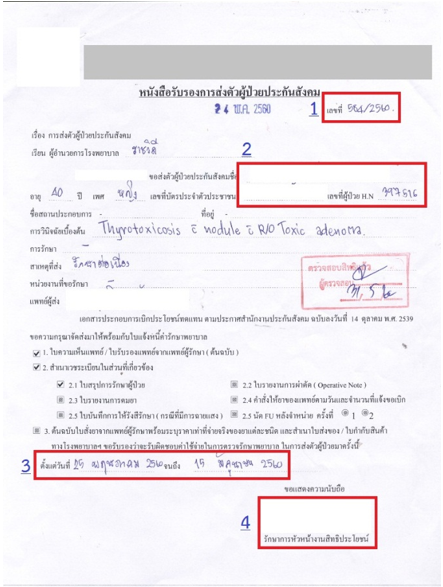 หนังสือรับรองการส่งตัวผู้ป่วยประกันสังคม
24 พ.ค. 2560
1 เลขที่ 584/2560
เรื่อง การส่งตัวผู้ป่วยประกันสังคม
เรียน ผู้อำนวยการโรงพยาบาล ราชวิถี
2
ขอส่งตัวผู้ป่วยประกันสังคมชื่อ
อายุ 40 ปี เพศ หญิง เลขที่บัตรประจำตัวประชาชน เลขที่ผู้ป่วย H.N
ชื่อสถานประกอบการ - ที่อยู่
การวินิจฉัยเบื้องต้น Thyrotoxicosis c̄ nodule c̄ R/O Toxic adenoma.
การรักษา -
สาเหตุที่ส่ง รักษาต่อเนื่อง
หน่วยงานที่ขอรักษา
แพทย์ผู้ส่ง
ตรวจสอบสิทธิแล้ว
ผู้ตรวจสอบ
เอกสารประกอบการเบิกประโยชน์ทดแทน ตามประกาศสำนักงานประกันสังคม ฉบับลงวันที่ 14 ตุลาคม พ.ศ. 2539
ขอความกรุณาจัดส่งมาให้พร้อมกับใบแจ้งหนี้ค่ารักษาพยาบาล
1. ใบความเห็นแพทย์ / ใบรับรองแพทย์จากแพทย์ผู้รักษา ( ต้นฉบับ )
2. สำเนาเวชระเบียนในส่วนที่เกี่ยวข้อง
2.1 ใบสรุปการรักษาผู้ป่วย 2.2 ใบรายงานการผ่าตัด ( Operative Note )
2.3 ใบรายงานการดมยา 2.4 คำสั่งให้ยาของแพทย์ตามวันและจำนวนที่แจ้งขอเบิก
2.5 ใบบันทึกการให้รังสีรักษา ( กรณีที่มีการฉายแสง ) 2.5 นัด FU หลังจำหน่าย ครั้งที่ 1 2
3. ต้นฉบับใบสั่งยาจากแพทย์ผู้รักษาพร้อมระบุราคาเท่าที่จ่ายจริงของยาแต่ละชนิด และสำเนาใบส่งของ / ใบกำกับสินค้า
ทางโรงพยาบาลฯ ขอรับรองว่าจะรับผิดชอบค่าใช้จ่ายในการตรวจรักษาพยาบาล ในการส่งตัวผู้ป่วยมาครั้งนี้
3 ตั้งแต่วันที่ 25 พฤษภาคม 2560 จนถึง 15 2560
ขอแสดงความนับถือ
4
รักษาการหัวหน้างานสิทธิประโยชน์